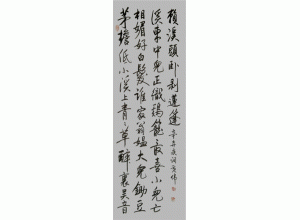 茅檐低小溪上青々草醉裏吴音
相媚好白髮誰家翁媪大兒鋤豆
溪東中兒正織鷄籠最喜小兒亡
賴溪頭卧剥蓮蓬
辛弃疾詞